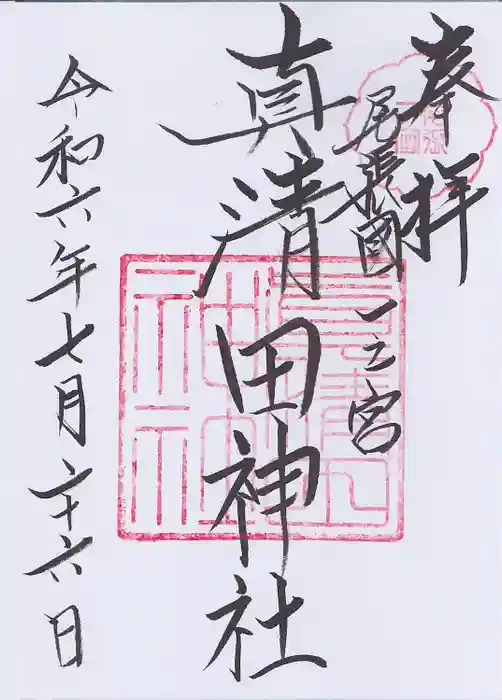 奉拝
尾張國一之宮
真清田神社
令和六年七月二十六日